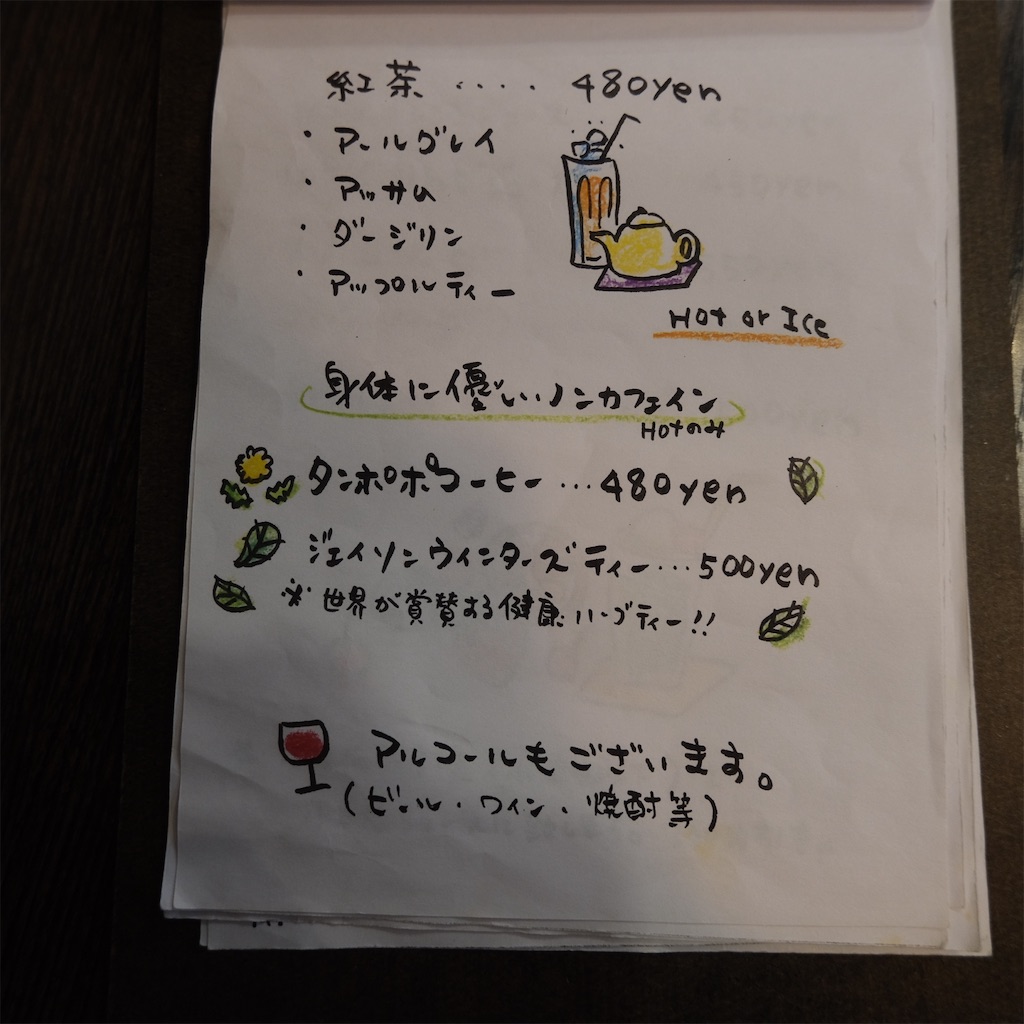 紅茶 ････ 480yen
・アールグレイ
・アッサム
・ダージリン
・アップルティー
Hot or Ice
身体に優しいノンカフェイン
Hotのみ
タンポポコーヒー…480yen
ジェイソンウィンターズティー…500yen
※世界が賞賛する健康ハーブティー!!
アルコールもございます。
(ビール・ワイン・焼酎等)